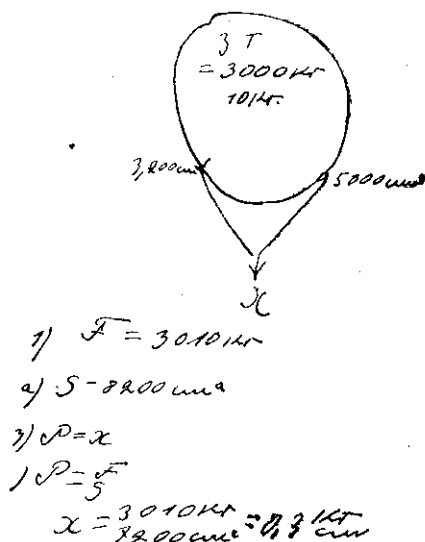 3 Т
= 3000 кг
10 кг.
3,200 см²
5000 см²
x
1) F = 3010 кг
2) S - 8200 см²
3) P = x
) P = F
S
x = 3010 кг
8200 см² = 0,3 кг
см